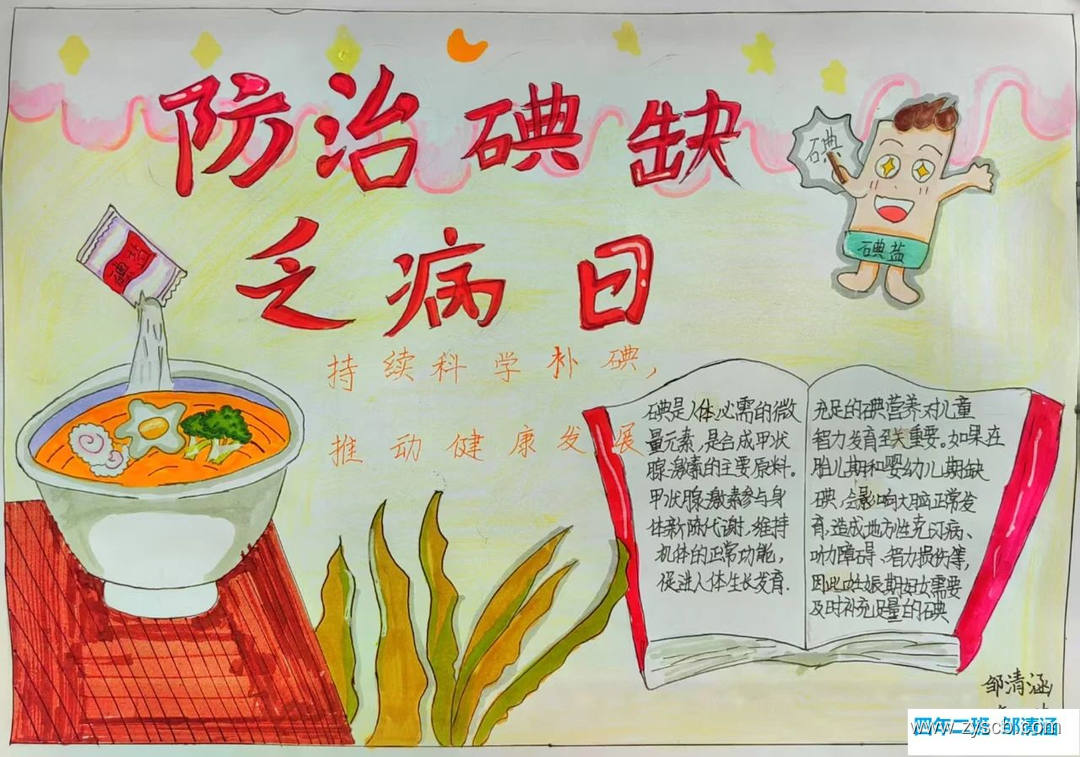 防治碘缺
乏病日
碘
碘盐
碘盐
持续科学补碘，
推动健康发展
碘是人体必需的微
量元素，是合成甲状
腺激素的主要原料。
甲状腺激素参与身
体新陈代谢，维持
机体的正常功能，
促进人体生长发育.
充足的碘营养对儿童
智力发育至关重要。如果在
胎儿期和婴幼儿期缺
碘，会影响大脑正常发
育，造成地方性克汀病、
听力障碍、智力损伤等，
因此妊娠期妇女需要
及时补充足量的碘
邹清涵
四年二班 邹清涵
www.zyscb.com